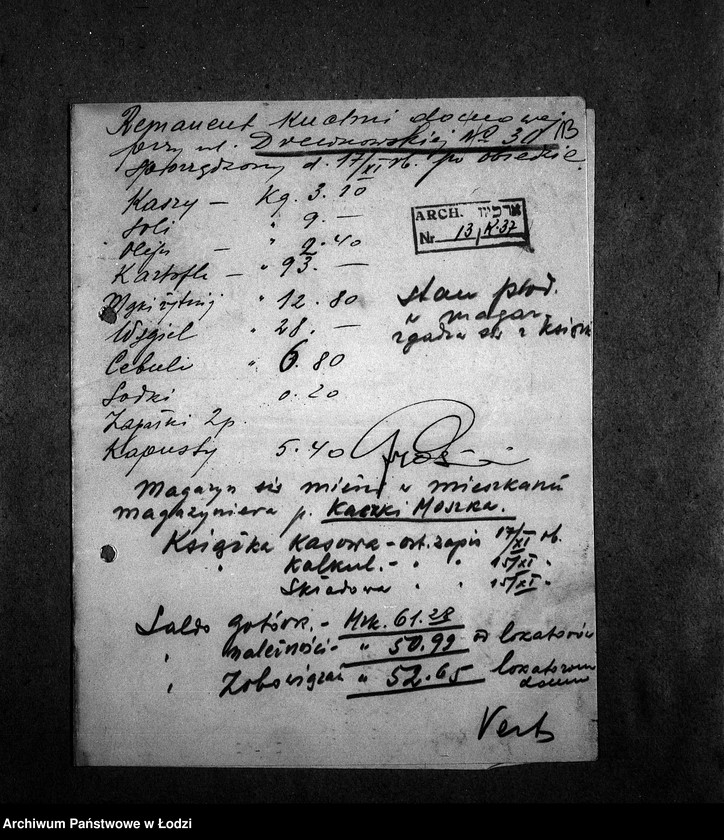 Remanent kuchni domowej
przy ul. Drewnowskiej No 30/13
sporządzony d. 17/XI rb. po obiedzie.
Kaszy — Kg. 3.20
Soli " 9.—
Oleju — " 2.40
Kartofle — " 93.—
Mąki żytniej " 12.80
Węgiel " 28.—
Cebuli " 6.80
Sodki 0.20
Zapałki 2p.
Kapusty 5.40
ARCH. ארכיוו
Nr 13
stan prod.
w magaz.
zgadza się z książk
Magazyn się mieści w mieszkaniu
magazyniera p. Kaczki Moszka.
Książka kasowa – ost. zapis 17/XI rb.
" kalkul. – " " 15/XI "
Składowa " " 15/XI "
Saldo gotówk. – Mrk. 61.28
" należności – " 50.99 od lokatorów
" Zobowiązań " 52.65 lokatorom
domu
Archiwum Państwowe w Łodzi